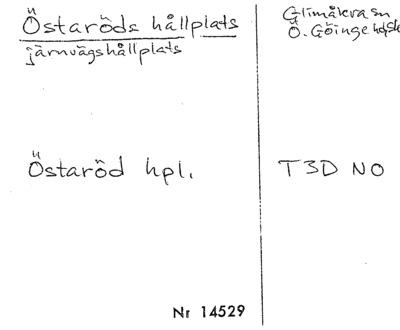 Östaröds hållplats
järnvägshållplats
Glimåkra sn
Ö. Göinge hd
Östaröd hpl.
T3D NO
Nr 14529